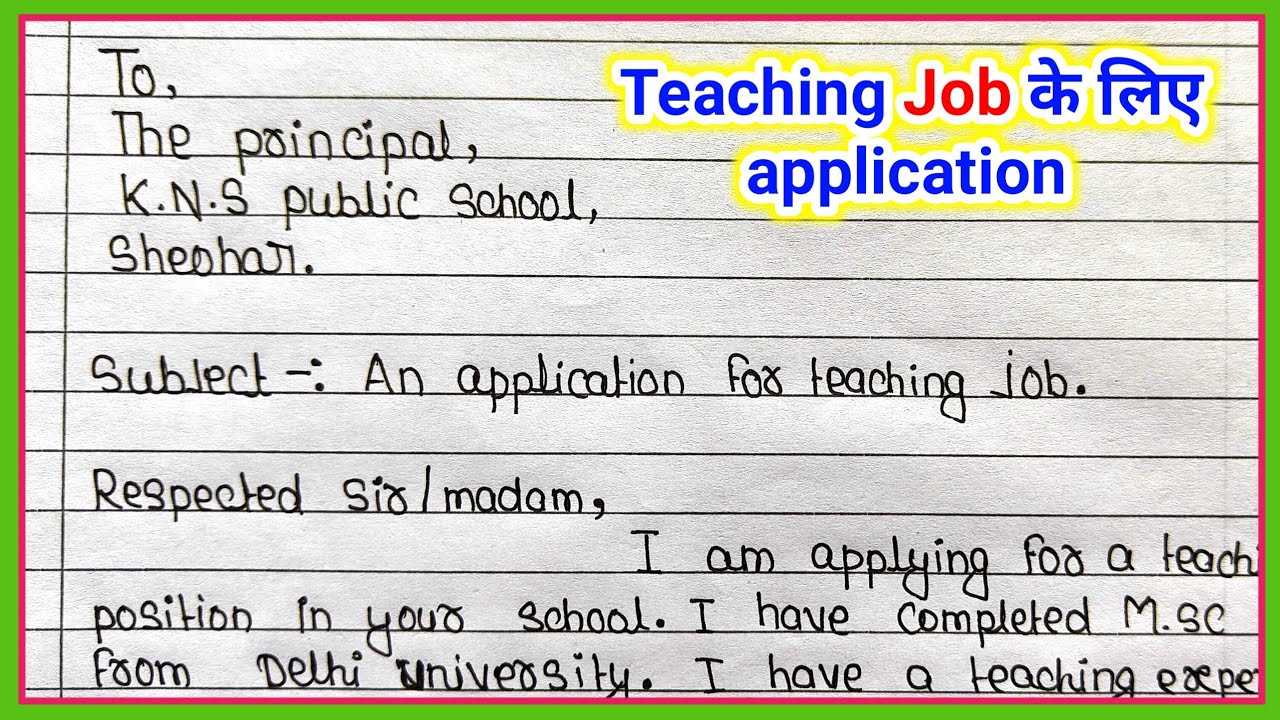 To,
Teaching Job के लिए
application
The principal,
K.N.S public school,
Sheohar.
Subject -: An application for teaching job.
Respected sir/madam,
I am applying for a teachi
position in your school. I have completed M.SC
from Delhi university. I have a teaching expe